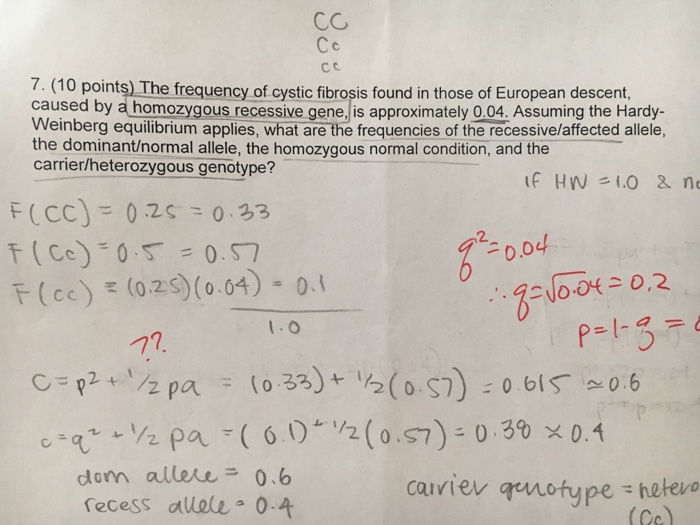 CC
Cc
cc
7. (10 points) The frequency of cystic fibrosis found in those of European descent,
caused by a homozygous recessive gene, is approximately 0.04. Assuming the Hardy-
Weinberg equilibrium applies, what are the frequencies of the recessive/affected allele,
the dominant/normal allele, the homozygous normal condition, and the
carrier/heterozygous genotype?
if HW = 1.0 &
F(CC) = 0.25 = 0.33
F(Cc) = 0.5 = 0.57
F(cc) = (0.25)(0.04) = 0.1
1.0
q²=0.04
∴ q=√0.04 = 0.2
p=1-q =
??
C = p² + 1/2 pq = (0.33) + 1/2 (0.57) = 0.615 ≈ 0.6
c = q² + 1/2 pq = (0.1) + 1/2 (0.57) = 0.38 ≈ 0.4
dom allele = 0.6
recess allele = 0.4
carrier genotype = hetero
(Cc)